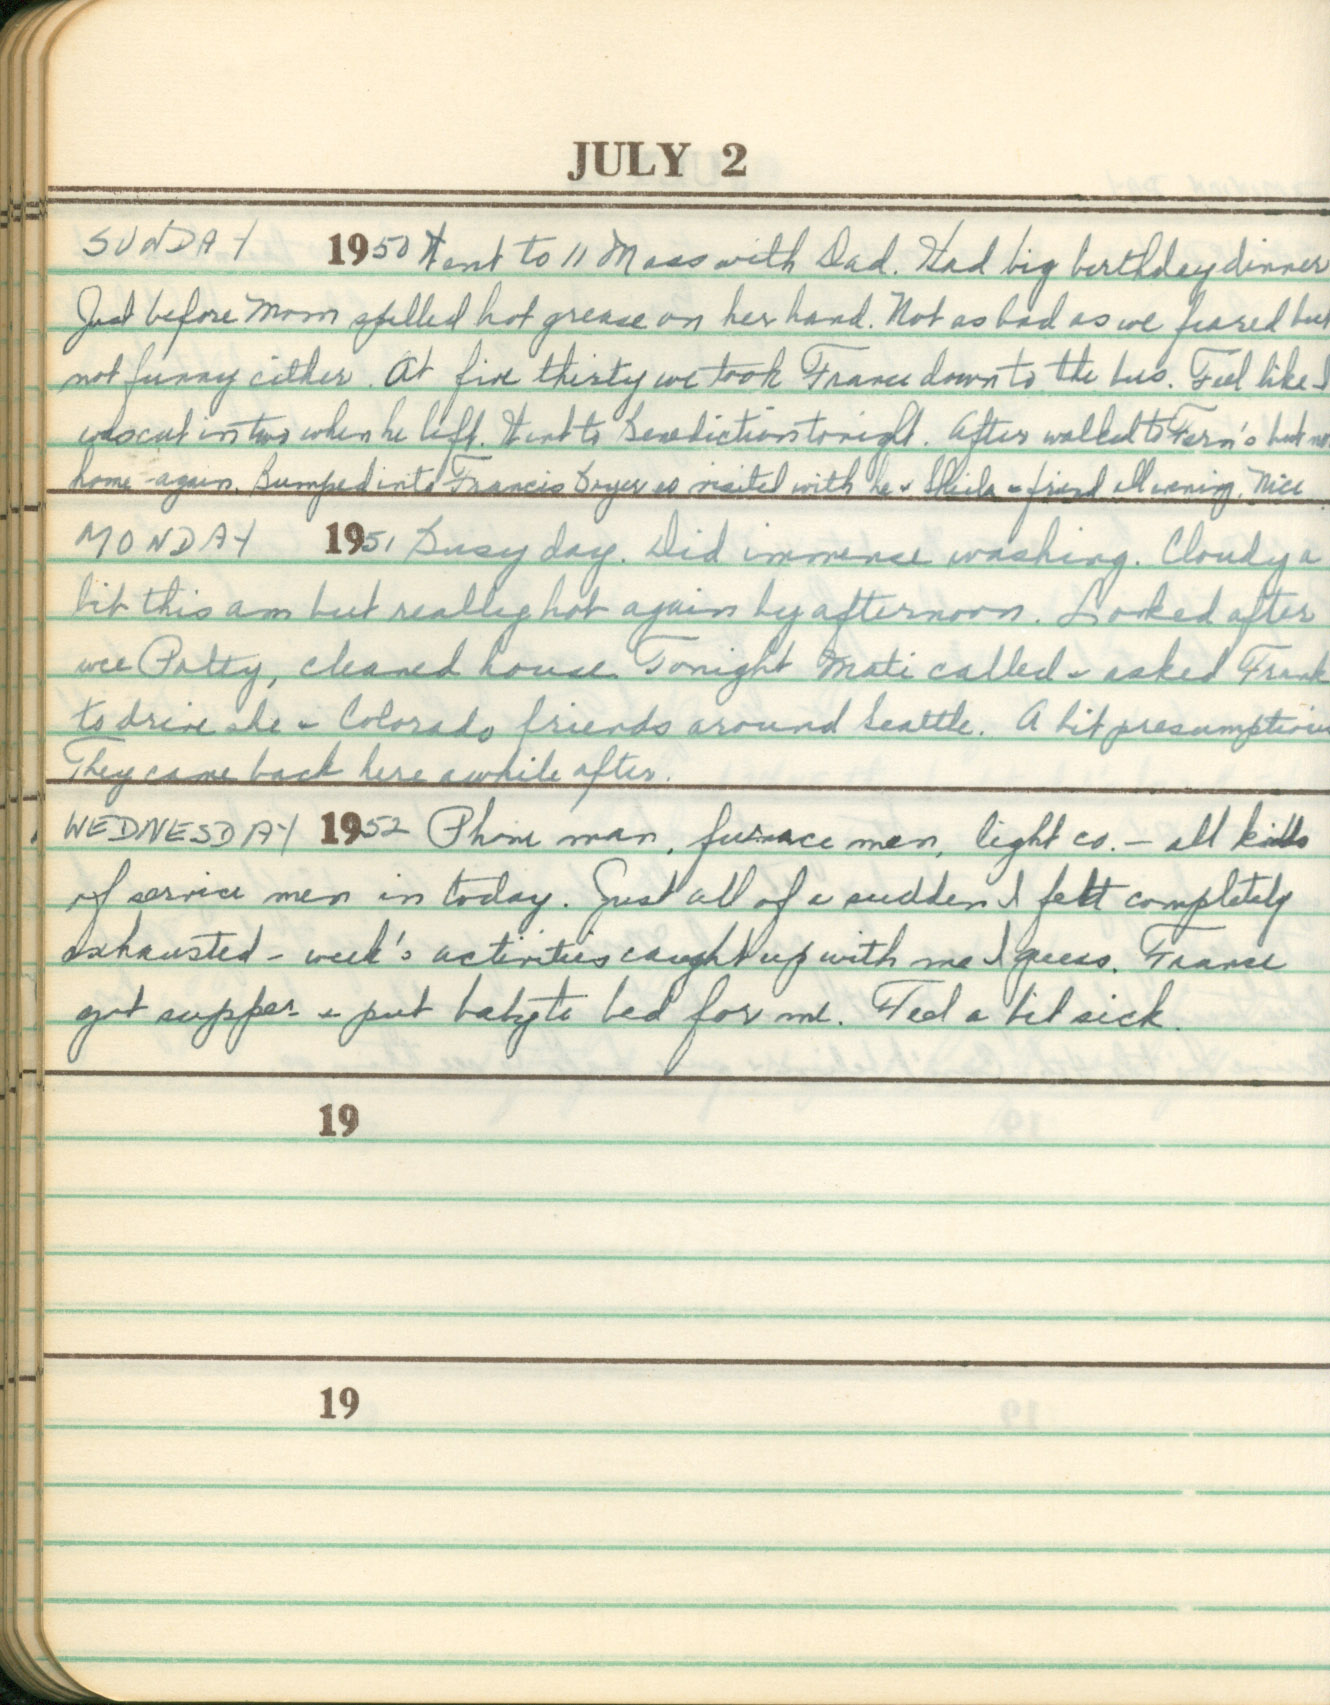 JULY 2
SUNDAY 1950 Went to 11 Mass with Dad. Had big birthday dinner
Just before Mom spilled hot grease on her hand. Not as bad as we feared but
not funny either. At five thirty we took France down to the bus. Feel like I
was cut in two when he left. Went to Benediction tonight. After walked to Fern's but no
home again. Bumped into Francis so visited with he & Sheila & friend all evening. Nice
MONDAY 1951 Busy day. Did immense washing. Cloudy a
bit this am but really hot again by afternoon. Looked after
wee Patty, cleaned house. Tonight Mati called & asked Frank
to drive she & Colorado friends around Seattle. A bit presumptious
They came back here awhile after.
WEDNESDAY 1952 Phone man, furnace men, light co. – all kinds
of service men in today. Just all of a sudden I felt completely
exhausted – week's activities caught up with me I guess. France
got supper & put baby to bed for me. Feel a bit sick.
19
19